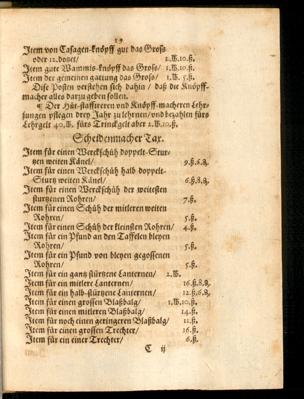 19
Item von Casagen-knöpff gut das Gross
oder 12. dotzet/ 2.lb.10.ß.
Item gute Wammis-knöpff das Gross/ 1.lb.10.ß.
Item der gemeinen gattung das Gross/ 1.lb.5.ß.
Dise Posten verstehen sich dahin / daß die Knöpff-
macher alles darzu geben sollen.
¶ Der Hüt-staffireren und Knöpff-macheren Lehr-
jungen pflegen drey Jahr zu lehrnen/ und bezahlen fürs
Lehrgelt 40.lb. fürs Trinckgelt aber 2.lb.10.ß.
Scheidenmacher Tax.
Item für einen Werckschüh doppelt-Stur-
tzen weiten Känel/ 9.ß.6.₰.
Item für einen Werckschüh halb doppelt-
Sturtz weiten Känel/ 6.ß.8.₰.
Item für einen Werckschüh der weitesten
sturtzenen Rohren/ 7.ß.
Item für einen Schüh der mitleren weiten
Rohren/ 5.ß.
Item für einen Schüh der kleinsten Rohren/ 4.ß.
Item für ein Pfund an den Taffelen bleyen
Rohren/ 5.ß.
Item für ein Pfund von bleyen gegossenen
Rohren/ 5.ß.
Item für ein gantz stürtzene Lanternen/ 2.lb.
Item für ein mitlere Lanternen/ 16.ß.8.₰.
Item für ein halb-stürtzene Lanternen/ 12.ß.6.₰.
Item für einen grossen Blaßbalg/ 1.lb.10.ß.
Item für einen mitleren Blaßbalg/ 14.ß.
Item für noch einen geringeren Blaßbalg/ 11.ß.
Item für einen grossen Trechter/ 16.ß.
Item für ein einer Trechter/ 6.ß.
C ij